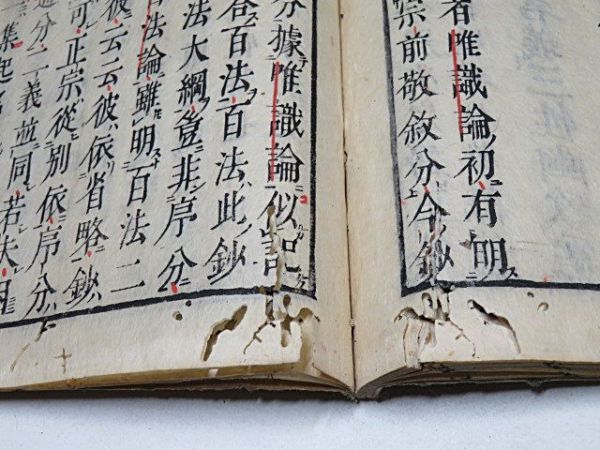 者唯識論初有明
宗前敬敘分今鈔
分據唯識論似記
答百法百法此鈔
法大綱豈非序分
法論雖明百法二
彼云云彼依省略鈔
可正宗從別依序分
分二義並同若夫
集起